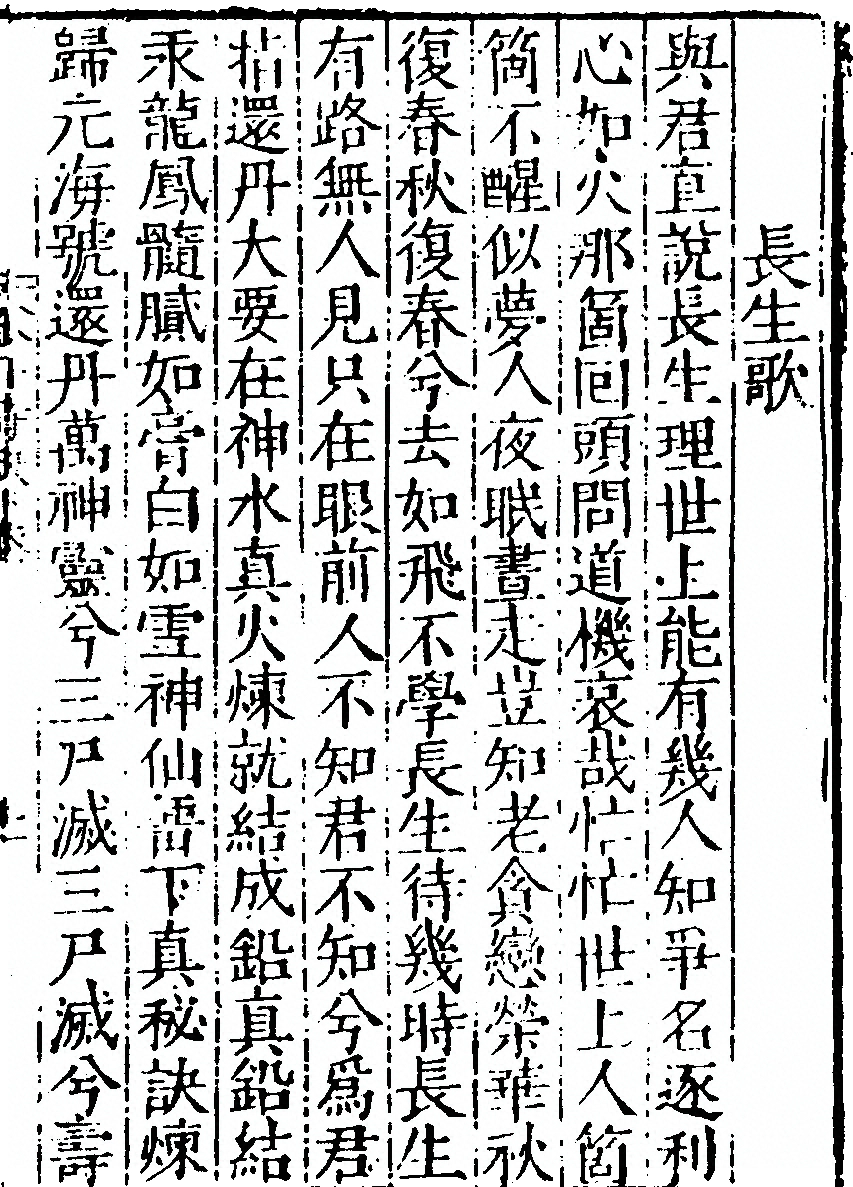 長生歌
與君直說長生理世上能有幾人知爭名逐利
心如火那箇回頭問道機哀哉忙忙世上人箇
箇不醒似夢人夜眠晝走豈知老貪戀榮華秋
復春秋復春兮去如飛不學長生待幾時長生
有路無人見只在眼前人不知君不知兮爲君
指還丹大要在神水真火煉就結成鉛真鉛結
汞龍鳳髓膩如膏白如雪神仙留下真秘訣煉
歸元海號還丹萬神靈兮三尸滅三尸滅兮壽